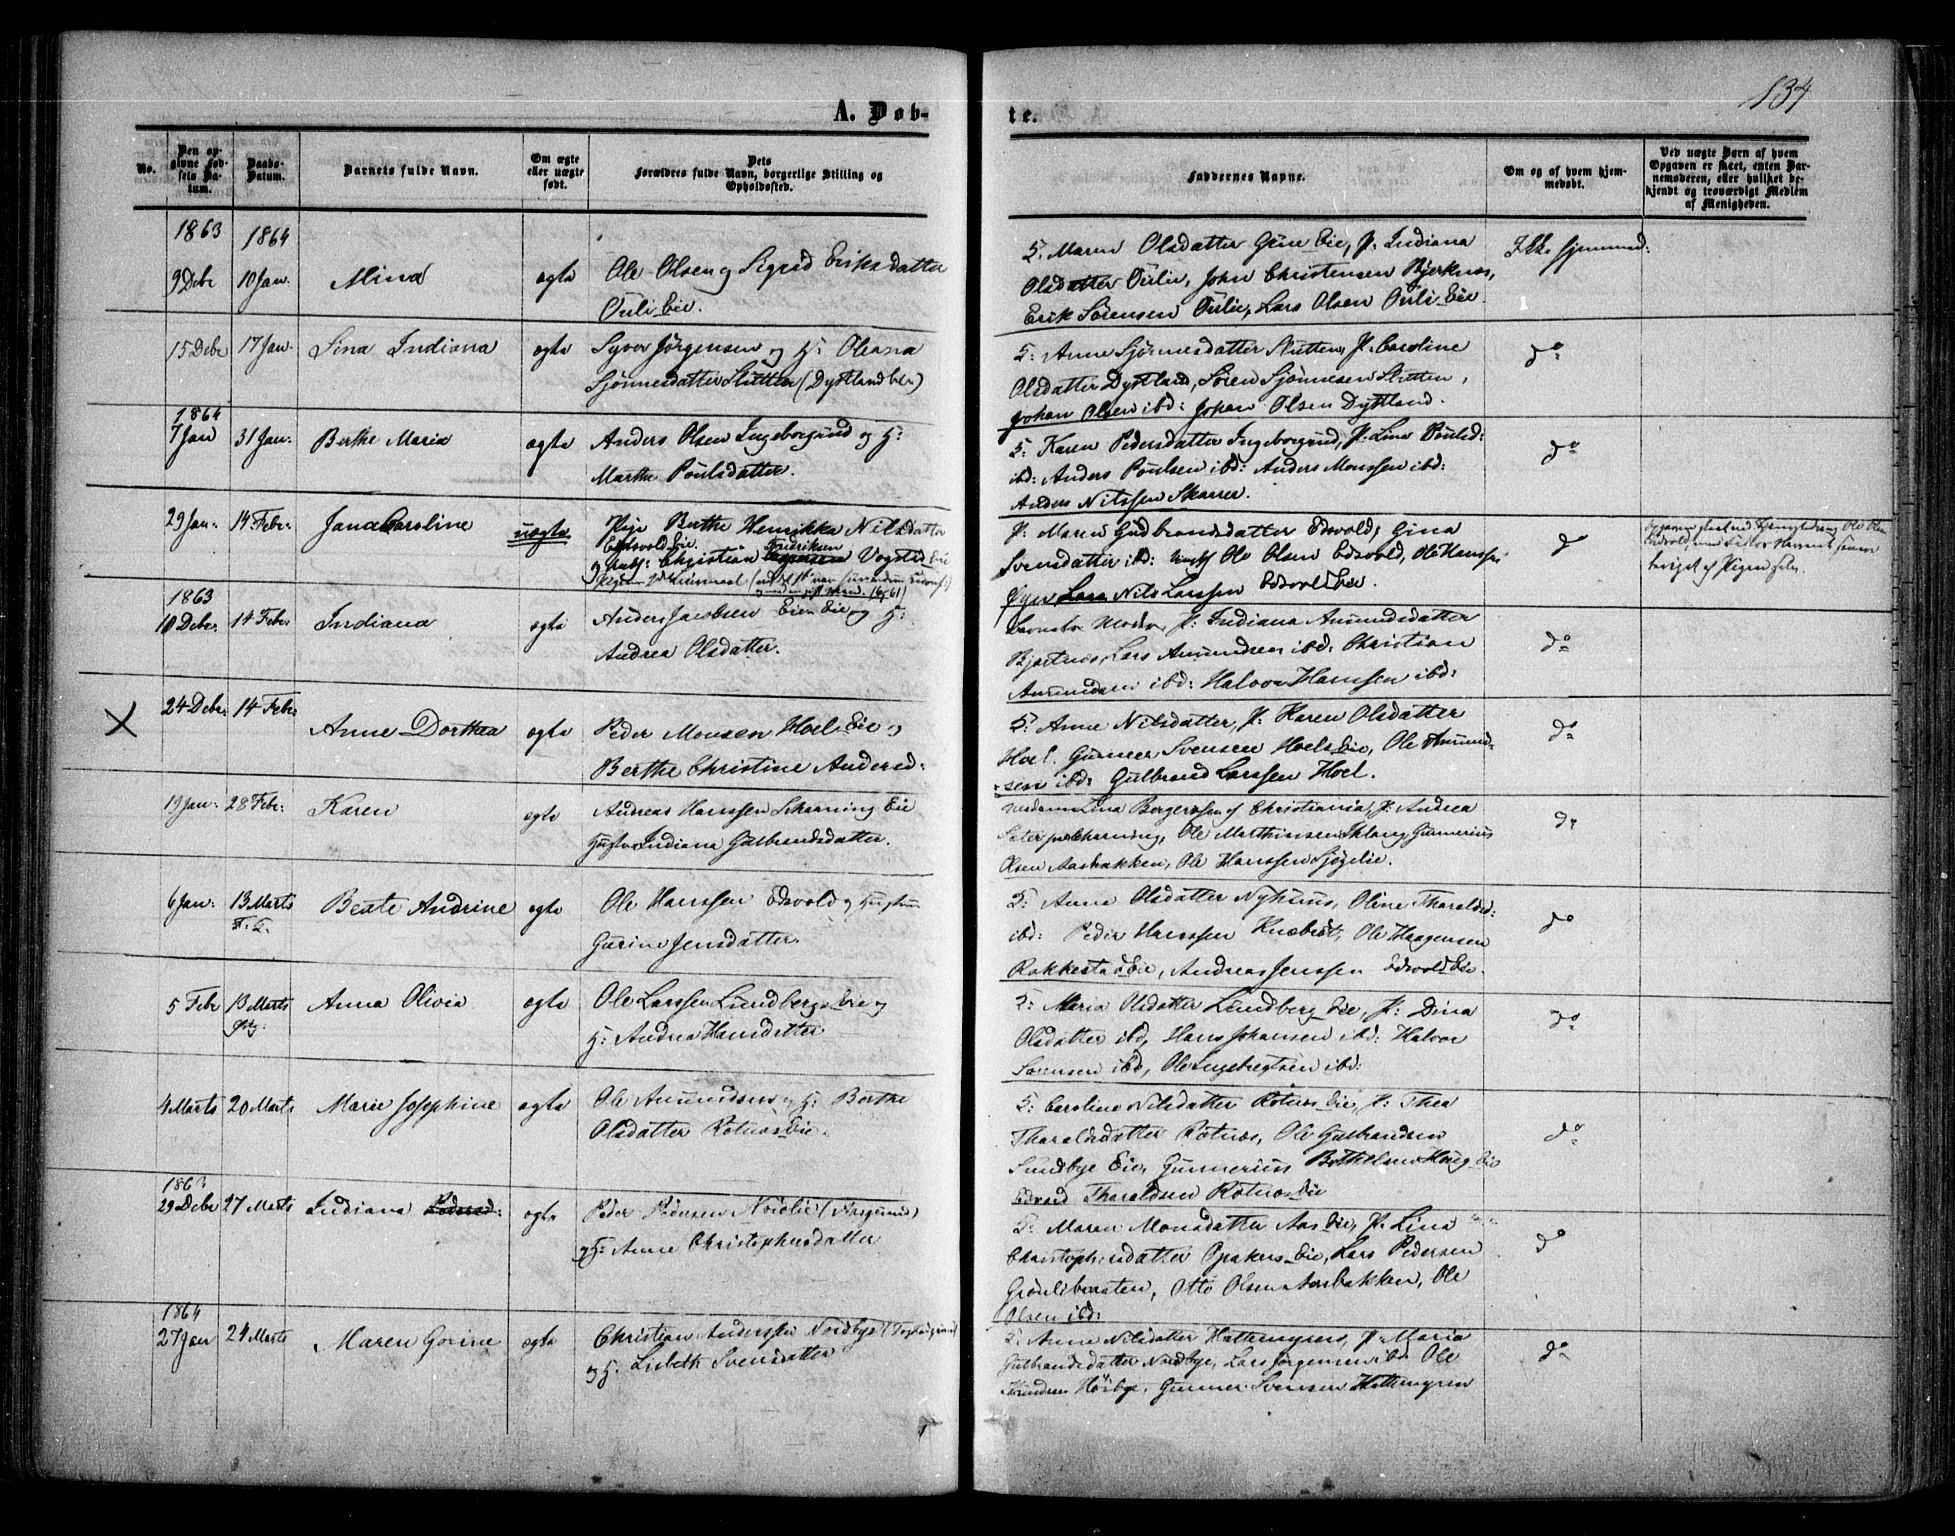 134
A. Døb-
te.
No.
Den op-
givne Fød-
sels Da-
tum.
Daabs-
Datum.
Barnets fulde Navn.
Om ægte
eller uægte
født.
Dets
Forældres fulde Navn, borgerlige Stilling og
Opholdssted.
Faddernes Navne.
Om og af hvem hjem-
medøbt.
Ved uægte Børn af hvem
Opgaven er skeet, enten Bar-
nemoderen, eller hvilket be-
kjendt og troværdigt Medlem
af Menigheden.
1863
9 Debr
1864
10 Jan.
Mina
ægte
Ole Olsen og Sigrid Eriksdatter
Ourli Eie.
5: Maren Olsdatter Eie, P. Indiana
Olsdatter Ourlie, John Christensen Bjerknæs,
Erik Sørensen Ourlie, Lars Olsen Ourli Eie.
Ikke hjemmed:
15 Debr
17 Jan.
Lina Indiana
ægte
Syver Jørgensen og H: Oleana
Sjønnesdatter Slutten (Dystland Eie)
5: Anne Sjønnesdatter Slutten, P. Caroline
Olsdatter Dystland, Søren Sjønnesen Slutten,
Johan Olsen ibd: Johan Olsen Dystland.
do
1864
7 Jan
31 Jan.
Berthe Maria
ægte
Anders Olsen Ingeborgrud og H:
Marthe Poulsdatter.
5: Karen Pedersdatter Ingeborgrud, P. Lina Poulsd:
ibd: Anders Poulsen ibd: Anders Monssen ibd:
Anders Nilssen Skarrer.
do
29 Jan.
14 Febr.
Jana Caroline
uægte
Pige Berthe Henrikka Nilsdatter
Edsvold Eie.
Fredriksen
og Christian Vogsted Eie
P. Maren Gudbrandsdatter Edsvold, Gina
Svensdatter ibd: Ole Olsen Edsvold, Ole Hanssen
Øjer Nils Larssen Edsvold Eie.
do
1863
10 Debr.
14 Febr
Indiana
ægte
Anders Jacobsen Eie og H:
Andrea Olsdatter.
Barnets Moder, P. Indiana Amundsdatter
Bjertnæs, Lars Amundsen ibd: Christian
Amundsen ibd: Halvor Hanssen ibd:
do
X
24 Debr.
14 Febr.
Anne Dorthea
ægte
Peder Monsen Hoel Eie og
Berthe Christine Andersd:
5: Anne Nilsdatter, P. Karen Olsdatter
Hoel. Gunner Svensen Hoels Eie, Ole Amund-
sen ibd: Gulbrand Larssen Hoel.
do
19 Jan.
28 Febr.
Karen
ægte
Andreas Hanssen Scharning Eie
Hustru Indiana Gulbrandsdatter.
Madam Lina Bergersen af Christiania, P. Andrea
Scharning, Ole Marthinsen Gunnerius
Olsen Aasbakken, Ole Hanssen Sjøgelie.
do
6 Jan.
13 Marts
Beate Andrine
ægte
Ole Hanssen Edsvold og Hustru
Gurine Jensdatter.
5: Anne Olsdatter Nyhuus, Oline Tharalds:
ibd: Peder Hanssen Knæbrot, Ole Haagensen
Rakkestad Eie, Andreas Jenssen Edsvold Eie.
do
5 Febr
13 Marts
Anna Olivia
ægte
Ole Larssen Lundbergs Eie og
H: Andrea Hansdatter
5: Maria Olsdatter Lundberg Eie, P: Dina
Olsdatter ibd, Hans Johansen ibd: Halvor
Sørensen ibd, Ole Ingebretsen ibd:
do
4 Marts
20 Marts
Marie Josephine
ægte
Ole Amundsen og H: Berthe
Olsdatter Rotnæs Eie.
5: Caroline Nilsdatter Rotnæs Eie, P: Thea
Tharaldsdatter Rotnæs, Ole Gulbrandsen
Sundbye Eie, Gunnerius Bothelsen Houg Eie
Edvard Tharaldsen Rotnæs Eie
do
1863
29 Debr
27 Marts
Indiana
ægte
Peder Pedersen Nordlie
og H: Anne Christophersdatter
5: Maren Monsdatter Aas Eie, P. Lina
Christophersdatter Opakers Eie, Lars Pedersen
Grønlibraaten, Otto Olsen Aasbakken, Ole
Olsen ibd:
do
1864
27 Jan
24 Marts
Maren Gorine
ægte
Christian Anderssen Nordbye
og H. Lisbeth Svensdatter
5: Anne Nilsdatter Hattemyren, P. Maria
Gulbrandsdatter Nordbye, Lars Jørgensen ibd Ole
Høibye, Gunner Svensen Hattemyren
do